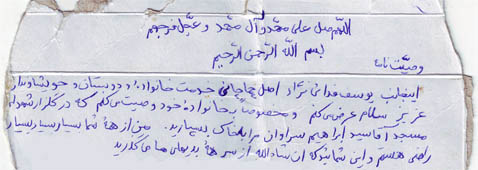 اللهم صل علی محمد و آل محمد و عجل فرجهم
بسم الله الرحمن الرحیم
وصیت نامه
اینجانب یوسف فدائی نژاد اصل چاچانی خدمت خانواده و دوستان و خویشاوندان
عزیز سلام عرض می کنم و مخصوصا به خانواده خود وصیت می کنم که در گلزار شهدای
مسجد آقا سید ابراهیم سراوان مرا به خاک بسپارید. من از همه شما بسیار بسیار بسیار
راضی هستم و این شمائید که ان شاء الله از سر همه بدیهای ما می گذرید